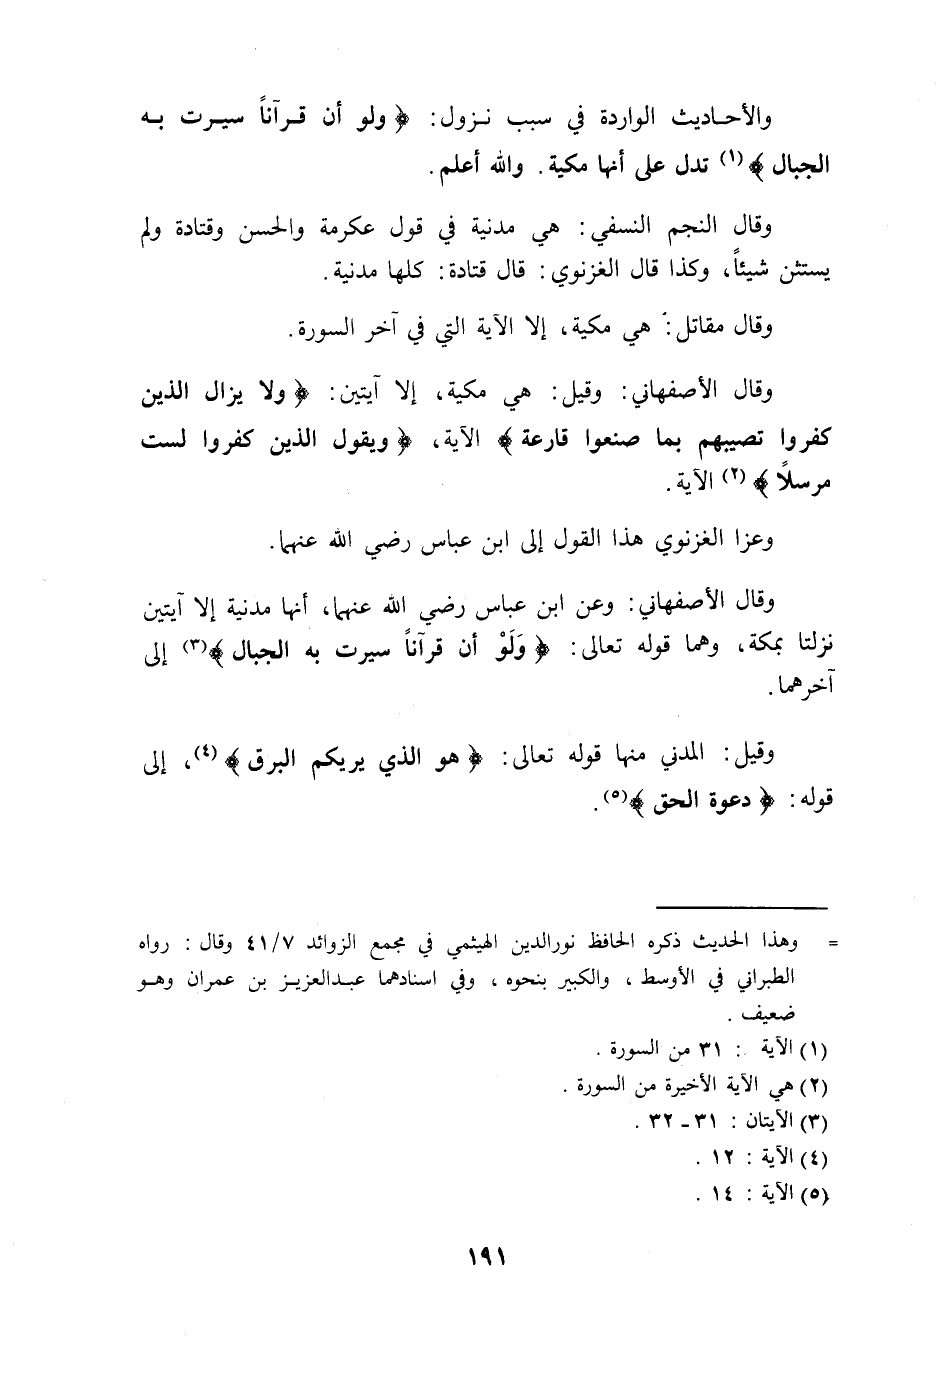 والأحـاديث الواردة في سبب نـزول: ﴿ ولو أن قـرآناً سيـرت بـه
الجبال ﴾(١) تدل على أنها مكية. والله أعلم.
وقال النجم النسفي: هي مدنية في قول عكرمة والحسن وقتادة ولم
يستثن شيئاً، وكذا قال الغزنوي: قال قتادة: كلها مدنية.
وقال مقاتل: هي مكية، إلا الآية التي في آخر السورة.
وقال الأصفهاني: وقيل: هي مكية، إلا آيتين: ﴿ ولا يزال الذين
كفروا تصيبهم بما صنعوا قارعة ﴾ الآية، ﴿ ويقول الذين كفروا لست
مرسلاً ﴾(٢) الآية.
وعزا الغزنوي هذا القول إلى ابن عباس رضي الله عنهما.
وقال الأصفهاني: وعن ابن عباس رضي الله عنهما، أنها مدنية إلا آيتين
نزلتا بمكة، وهما قوله تعالى: ﴿ وَلَوْ أن قرآناً سيرت به الجبال ﴾(٣) إلى
آخرهما.
وقيل: المدني منها قوله تعالى: ﴿ هو الذي يريكم البرق ﴾(٤)، إلى
قوله: ﴿ دعوة الحق ﴾(٥).
= وهذا الحديث ذكره الحافظ نورالدين الهيثمي في مجمع الزوائد ٤١/٧ وقال : رواه
الطبراني في الأوسط ، والكبير بنحوه ، وفي اسنادهما عبـدالعزيـز بن عمران وهـو
ضعيف .
(١) الآية : ٣١ من السورة .
(٢) هي الآية الأخيرة من السورة .
(٣) الآيتان : ٣١ ـ ٣٢ .
(٤) الآية : ١٢ .
(٥) الآية : ١٤ .
١٩١